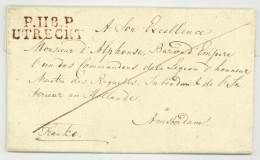 P.118.P
UTRECHT
A Son Excellence
Monsieur d'Alphonse, Baron d'Empire
l'un des Commandans de la Légion d'honneur
Maitre des Requetes, Intendant de l'In
terieur en Hollande
à
Amsterdam
Franko